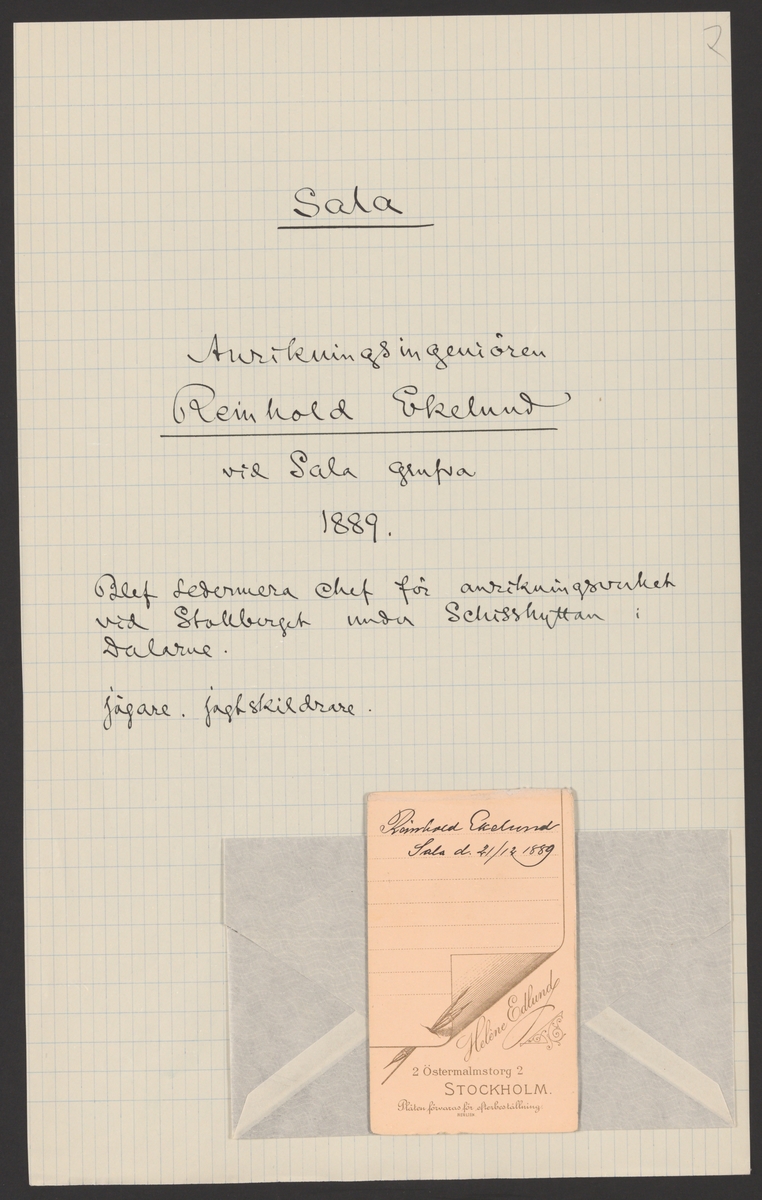 2
Sala
Anrikningsingeniören
Reinhold Ekelund
vid Sala grufva
1889.
Blef sedermera chef för anrikningsverket
vid Stollberget under Schisshyttan i
Dalarne.
jägare. jagtskildrare.
Reinhold Ekelund
Sala d. 21/12 1889
Heléne Edlund
2 Östermalmstorg 2
STOCKHOLM.
Plåten förvaras för efterbeställning.